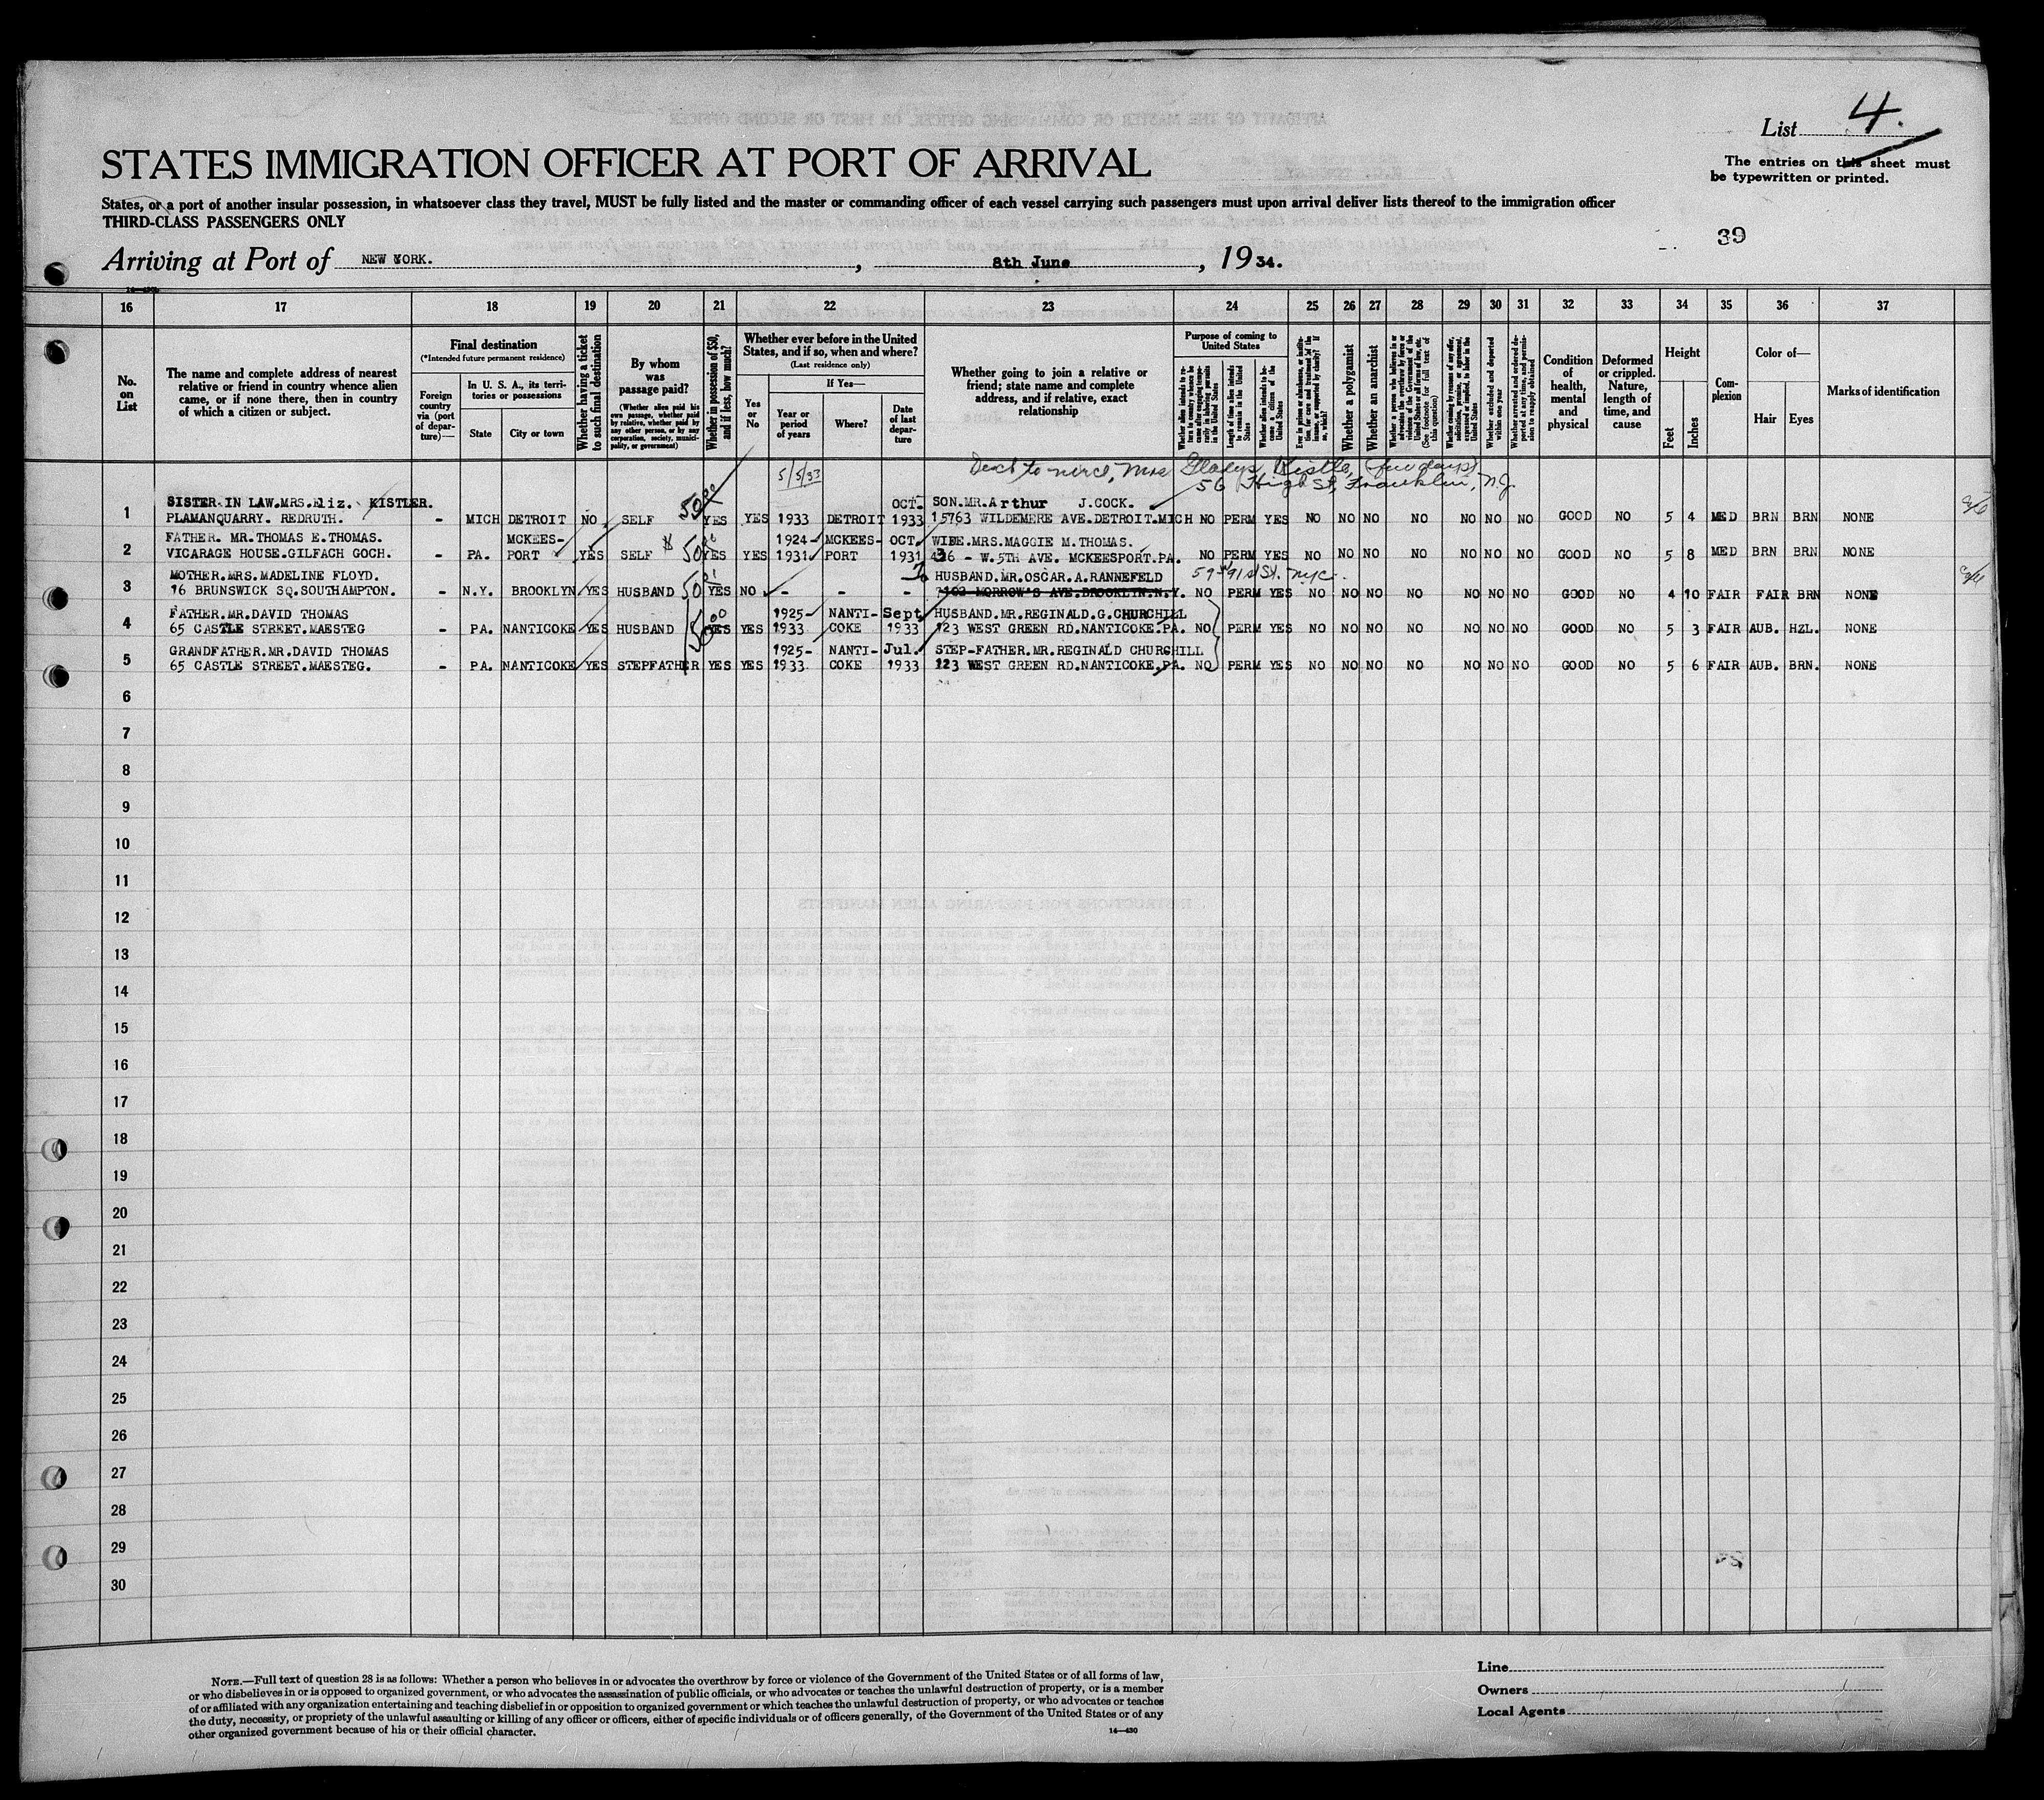 List 4.
STATES IMMIGRATION OFFICER AT PORT OF ARRIVAL
The entries on this sheet must
be typewritten or printed.
States, or a port of another insular possession, in whatsoever class they travel, MUST be fully listed and the master or commanding officer of each vessel carrying such passengers must upon arrival deliver lists thereof to the immigration officer
THIRD-CLASS PASSENGERS ONLY
39
Arriving at Port of NEW YORK. , 8th June , 1934.
16 17 18 19 20 21 22 23 24 25 26 27 28 29 30 31 32 33 34 35 36 37
No. on List
The name and complete address of nearest relative or friend in country whence alien came, or if none there, then in country of which a citizen or subject.
Final destination
(*Intended future permanent residence)
Foreign country via (port of departure)—
In U. S. A., its territories or possessions
State
City or town
Whether having a ticket to such final destination
By whom was passage paid?
(Whether alien paid his own passage, whether paid by relative, whether paid by any other person, or by any corporation, society, municipality, or government)
Whether in possession of $50, and if less, how much?
Whether ever before in the United States, and if so, when and where?
(Last residence only)
Yes or No
If Yes—
Year or period of years
Where?
Date of last departure
Whether going to join a relative or friend; state name and complete address, and if relative, exact relationship
Purpose of coming to United States
Length of time alien intends to remain in the United States
Whether alien intends to become a citizen of the United States
Whether a polygamist
Whether an anarchist
(See footnote for full text of this question)
Whether excluded and deported within one year
Whether arrested and ordered deported at any time, and permission to reapply obtained
Condition of health, mental and physical
Deformed or crippled. Nature, length of time, and cause
Height
Feet
Inches
Complexion
Color of—
Hair
Eyes
Marks of identification
5/5/33
to niece, Mrs Gladys Kistler, (few days)
56 High St, Franklin, N.J.
SISTER IN LAW.MRS.Eliz. KISTLER. OCT. SON.MR.Arthur J.COCK.
1 PLAMANQUARRY. REDRUTH. - MICH DETROIT NO SELF 50 00 YES YES 1933 DETROIT 1933 15763 WILDEMERE AVE.DETROIT.MICH NO PERM YES NO NO NO NO NO NO NO GOOD NO 5 4 MED BRN BRN NONE
FATHER. MR.THOMAS E.THOMAS. MCKEES- 1924- MCKEES- OCT. WIFE.MRS.MAGGIE M.THOMAS.
2 VICARAGE HOUSE.GILFACH GOCH. - PA. PORT YES SELF $ 50 YES YES 1931 PORT 1931 436 - W.5TH AVE. MCKEESPORT.PA. NO PERM YES NO NO NO NO NO NO NO GOOD NO 5 8 MED BRN BRN NONE
MOTHER.MRS.MADELINE FLOYD. HUSBAND.MR.OSCAR.A.RANNEFELD 59 W 91st St. NYC.
3 16 BRUNSWICK SQ.SOUTHAMPTON. - N.Y. BROOKLYN YES HUSBAND 50 YES NO - - - MORROW'S AVE.BROOKLYN.N.Y. NO PERM YES NO NO NO NO NO NO NO GOOD NO 4 10 FAIR FAIR BRN NONE
FATHER.MR.DAVID THOMAS 1925- NANTI- Sept. HUSBAND.MR.REGINALD.G.CHURCHILL
4 65 CASTLE STREET.MAESTEG - PA. NANTICOKE YES HUSBAND 50 00 YES YES 1933 COKE 1933 123 WEST GREEN RD.NANTICOKE.PA. NO PERM YES NO NO NO NO NO NO NO GOOD NO 5 3 FAIR AUB. HZL. NONE
GRANDFATHER.MR.DAVID THOMAS 1925- NANTI- Jul. STEP-FATHER.MR.REGINALD CHURCHILL
5 65 CASTLE STREET.MAESTEG. - PA. NANTICOKE YES STEPFATHER YES YES 1933 COKE 1933 123 WEST GREEN RD.NANTICOKE.PA. NO PERM YES NO NO NO NO NO NO NO GOOD NO 5 6 FAIR AUB. BRN. NONE
6
7
8
9
10
11
12
13
14
15
16
17
18
19
20
21
22
23
24
25
26
27
28
29
30
NOTE.—Full text of question 28 is as follows: Whether a person who believes in or advocates the overthrow by force or violence of the Government of the United States or of all forms of law,
or who disbelieves in or is opposed to organized government, or who advocates the assassination of public officials, or who advocates or teaches the unlawful destruction of property, or is a member
of or affiliated with any organization entertaining and teaching disbelief in or opposition to organized government or which teaches the unlawful destruction of property, or who advocates or teaches
the duty, necessity, or propriety of the unlawful assaulting or killing of any officer or officers, either of specific individuals or of officers generally, of the Government of the United States or of any
other organized government because of his or their official character.
14—430
Line
Owners
Local Agents